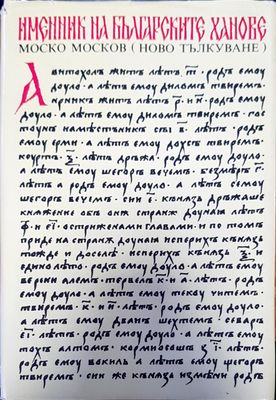 ИМЕННИК НА БЪЛГАРСКИТЕ ХАНОВЕ
МОСКО МОСКОВ ( НОВО ТЪЛКУВАНЕ )
Авитохолъ житъ лѣтъ т҃ · родъ емоу
доуло · а лѣтъ емоу диломъ твиремъ ·
ирникъ житъ лѣтъ р҃ · и и҃ · родъ емоу
доуло · а лѣтъ емоу диломъ твиремъ · гос
тоунъ намѣстникъ сьі в҃ · лѣта · родъ
емоу ерми · а лѣтъ емоу дохсъ твиремъ ·
коуртъ · ѯ҃ · лѣтъ дръжа · родъ емоу доуло ·
а лѣтъ емоу шегоръ вечемъ · безмѣръ г҃
лѣтъ а родъ емоу доуло · а лѣтъ семоу
шегоръ вечемъ · сии е҃ · кънязь дръжаше
княжение обь онъ странѫ доунаꙗ лѣтъ
ф҃ · и е҃і · остриженами главами · и по томъ
приде на странѫ доунаꙗ исперихъ кънязь
тожде и доселѣ · исперихъ кънязь · ѯ҃ · и
едино лѣто · родъ емоу доуло · а лѣтъ емоу
верени алемъ · тервель к҃ · и а҃ · лѣто · родъ
емоу доуло · а лѣтъ емоу текоу читемъ ·
твиремъ · к҃ · и и҃ · лѣтъ · родъ емоу доуло ·
а лѣтъ емоу дванъ шехтемъ · севаръ
е҃і · лѣтъ · родъ емоу доуло · а лѣтъ емоу
тохъ алтомъ · кормисошь з҃і · лѣтъ ·
родъ емоу вокиль а лѣтъ емоу шегоръ
твиремъ · сии же кънязь измѣни родъ